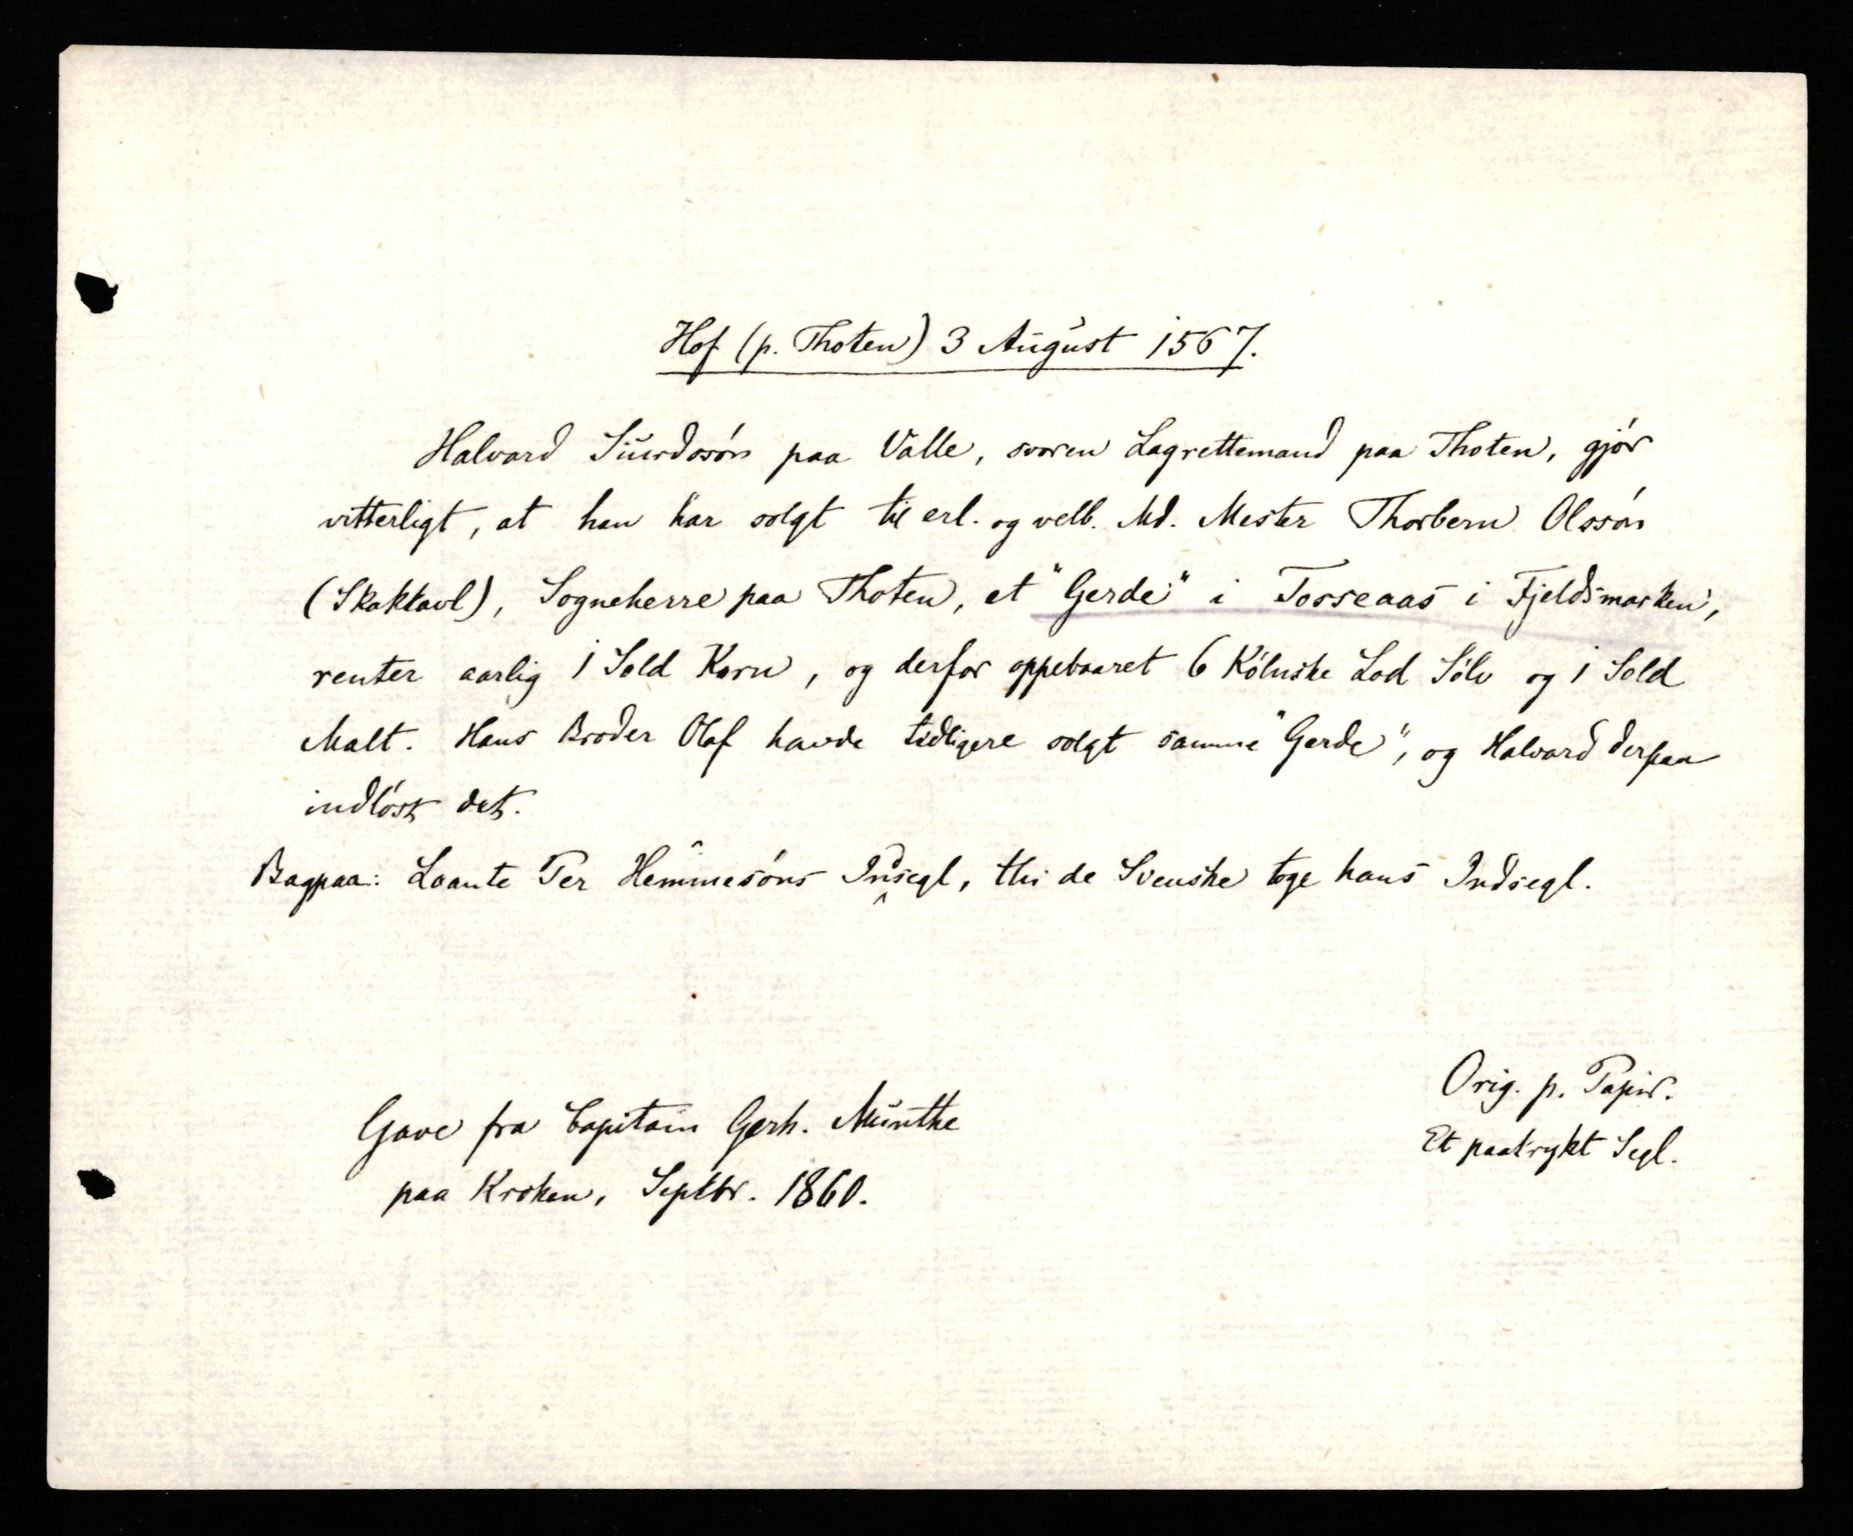 Hof (p. Thoten) 3 August 1567.
Halvard Siurdssøn paa Valle, svoren Lagrettemand paa Thoten, gjør
vitterligt, at han har solgt til erl. og velb. Md. Mester Thorbern Olssøn
(Skaktavl), Sogneherre paa Thoten, et "Gerde" i Tosseaas i Fjeldsmarken,
renter aarlig 1 Sold Korn, og derfor oppebaaret 6 Kølnske Lod Sølv og 1 Sold
Malt. Hans Broder Olaf havde tidligere solgt samme "Gerde", og Halvard derpaa
indløst det.
Bagpaa: Laante Per Hemmesøns Indsegl, thi de Svenske toge hans Indsegl.
Orig. p. Papir.
Et paatrykt Segl.
Gave fra Capitain Gerh. Munthe
paa Kroken, Septbr. 1860.